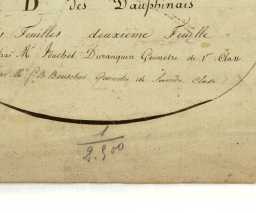 D des Dauphinais
Feuilles deuxième Feuille
Mr Pouchet Géometre de 1re Classe
par Mr Géometre de Seconde Classe
1
2.500